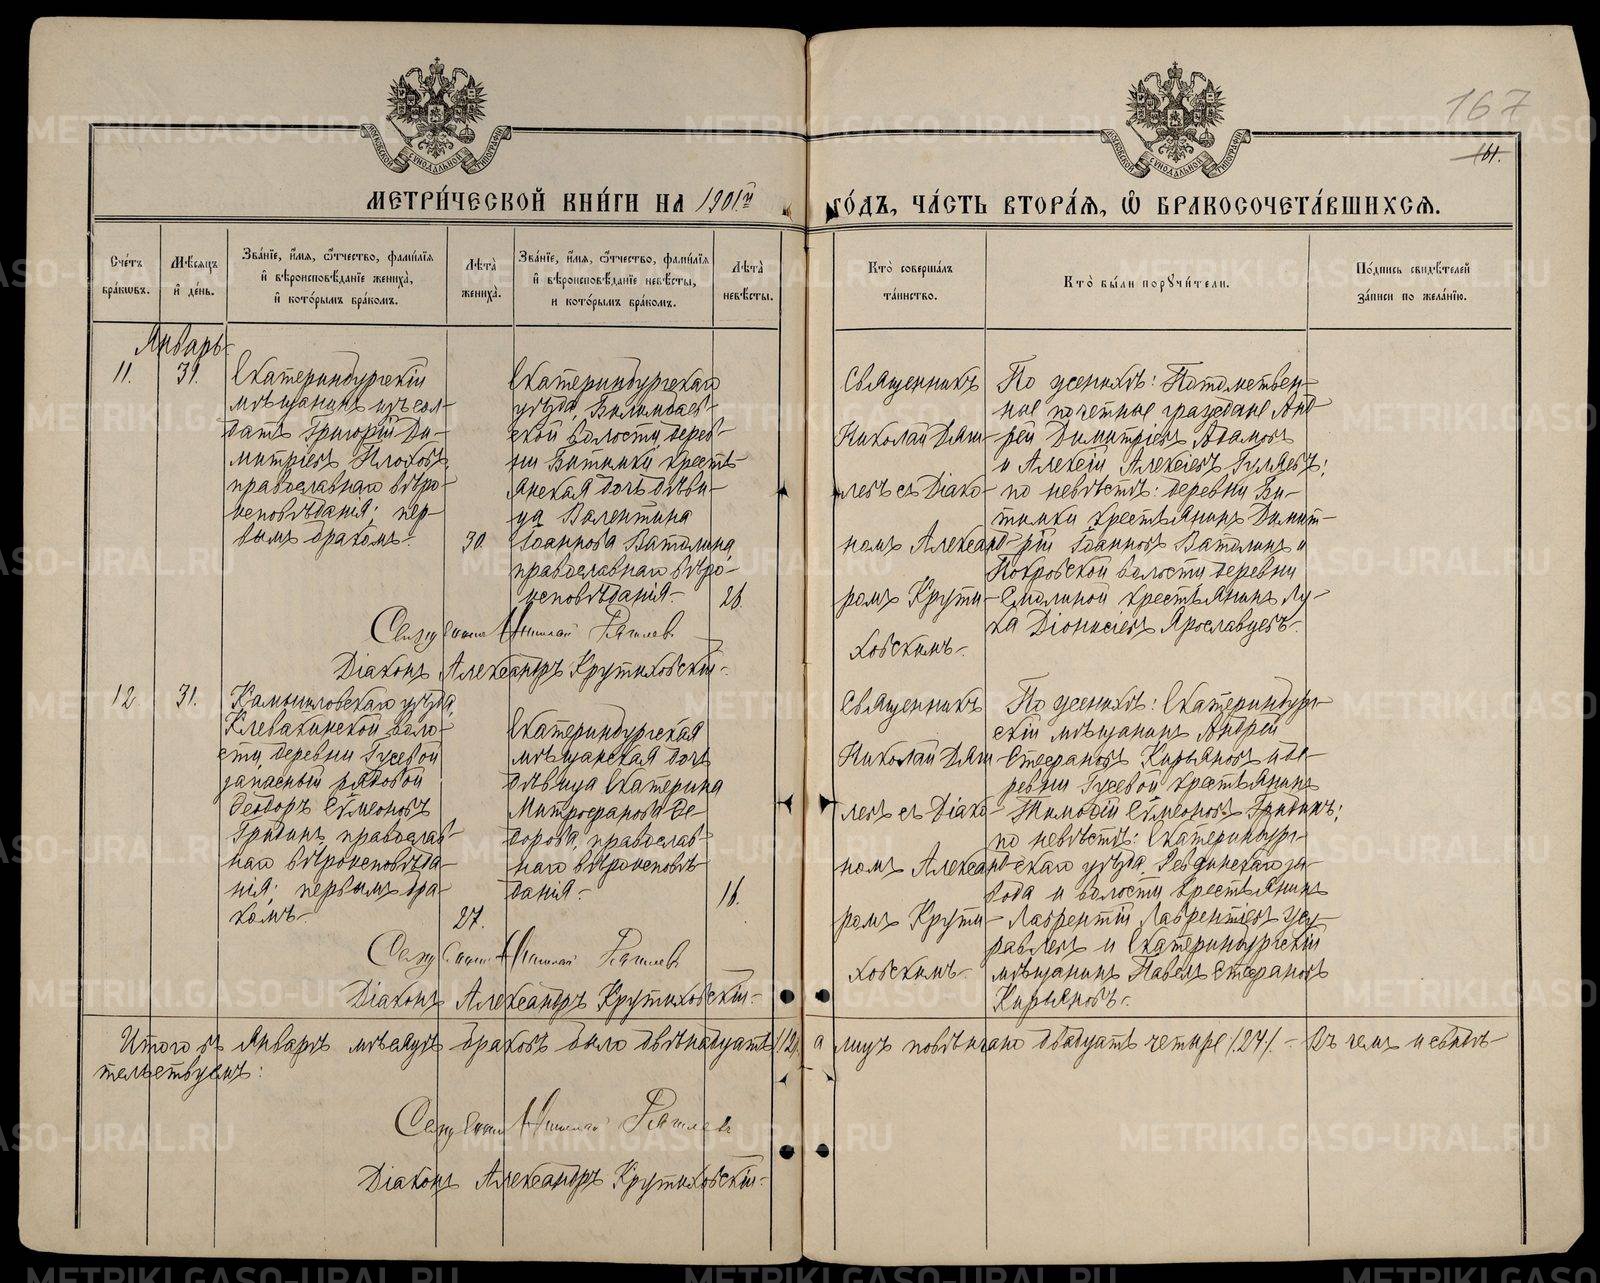 167
161.
МОСКОВСКОЙ СѴНОДАЛЬНОЙ ТИПОГРАФІИ
МОСКОВСКОЙ СѴНОДАЛЬНОЙ ТИПОГРАФІИ
МЕТРИ́ЧЕСКОЙ КНИ́ГИ НА 1901й ГО́ДЪ, ЧА́СТЬ ВТОРА́Ѧ, Ѿ БРАКОСОЧЕТА́ВШИХСѦ.
Сче́тъ
бра́кωвъ.
Мѣ́сяцъ
и҆ де́нь.
Зва́нїе, и҆́мѧ, ѻ҆́тчество, фами́лїѧ
и҆ вѣроисповѣ́данїе жениха̀,
и҆ кото́рымъ бра́комъ.
Лѣ́та̀
жениха̀.
Зва́нїе, и҆́мѧ, ѻ҆́тчество, фами́лїѧ
и҆ вѣроисповѣ́данїе невѣ́сты,
и҆ кото́рымъ бра́комъ.
Лѣ́та̀
невѣ́сты.
Кто̀ соверша́лъ
та́инство.
Кто̀ бы́ли порꙋчи́тели.
По́дпись свидѣ́телей
за́писи по жела́нїю.
Январь
11.
31.
Екатеринбургскій
мѣщанинъ изъ сол-
датъ Григорій Ди-
митріевъ Плоховъ,
православнаго вѣро-
исповѣданія; пер-
вымъ бракомъ.
30.
Екатеринбургскаго
уѣзда, Билимбаев-
ской волости, дерев-
ни Битимки крестъ-
янская дочь дѣви-
ца Валентина
Іоаннова Ватолина,
православнаго вѣро-
исповѣданія.
26.
Священникъ
Николай Дяги-
левъ съ Діако-
номъ Александ-
ромъ Крути-
ховскимъ.
По женихѣ: Потомствен-
ные почетные граждане Анд-
рей Димитріевъ Адамовъ
и Алексій Алексіевъ Гуляевъ;
по невѣстѣ: деревни Би-
тимки крестьянинъ Димит-
рій Іоанновъ Ватолинъ и
Покровской волости деревни
Смолиной крестьянинъ Лу-
ка Діонисіевъ Ярославцевъ.
Священникъ Николай Дягилевъ
Діаконъ Александръ Крутиховскій.
12
31.
Камышловскаго уѣзда,
Клевакинской воло-
сти, деревни Гусевой
запасный рядовой
Ѳеодоръ Сѵмеоновъ
Грядинъ, православ-
наго вѣроисповѣда-
нія; первымъ бра-
комъ.
27.
Екатеринбургская
мѣщанская дочь
дѣвица Екатерина
Митрофанова Ѳе-
дорова, православ-
наго вѣроисповѣ-
данія.
16.
Священникъ
Николай Дяги-
левъ съ Діако-
номъ Александ-
ромъ Крути-
ховскимъ.
По женихѣ: Екатеринбург-
скій мѣщанинъ Андрей
Стефановъ Кирьяновъ и де-
ревни Гусевой крестьянинъ
Тимофій Сѵмеоновъ Грядинъ;
по невѣстѣ: Екатеринбург-
скаго уѣзда, Ревдинскаго за-
вода и волости крестьянинъ
Лаврентій Лаврентіевъ
и Екатеринбургскій
мѣщанинъ Павелъ Стефановъ
Кирьяновъ.
Священникъ Николай Дягилевъ
Діаконъ Александръ Крутиховскій.
Итого въ Январѣ мѣсяцѣ браковъ было двѣнадцать /12/, а лицъ повѣнчано двадцать четыре /24/. Въ чемъ и свидѣ-
тельствуемъ:
Священникъ Николай Дягилевъ
Діаконъ Александръ Крутиховскій.
METRIKI.GASO-URAL.RU